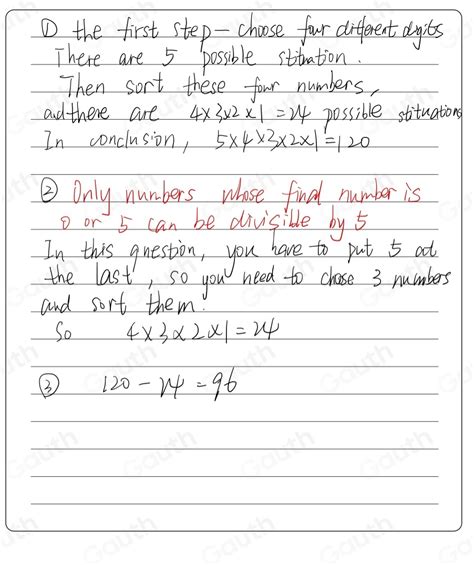 ① the first step - choose four different digits
There are 5 possible stituation.
Then sort these four numbers,
and there are 4x3x2x1=24 possible stituations
In conclusion, 5x4x3x2x1=120
② Only numbers whose final number is
0 or 5 can be divisible by 5
In this question, you have to put 5 at
the last, so you need to chose 3 numbers
and sort them.
So 4x3x2x1=24
③ 120-24=96